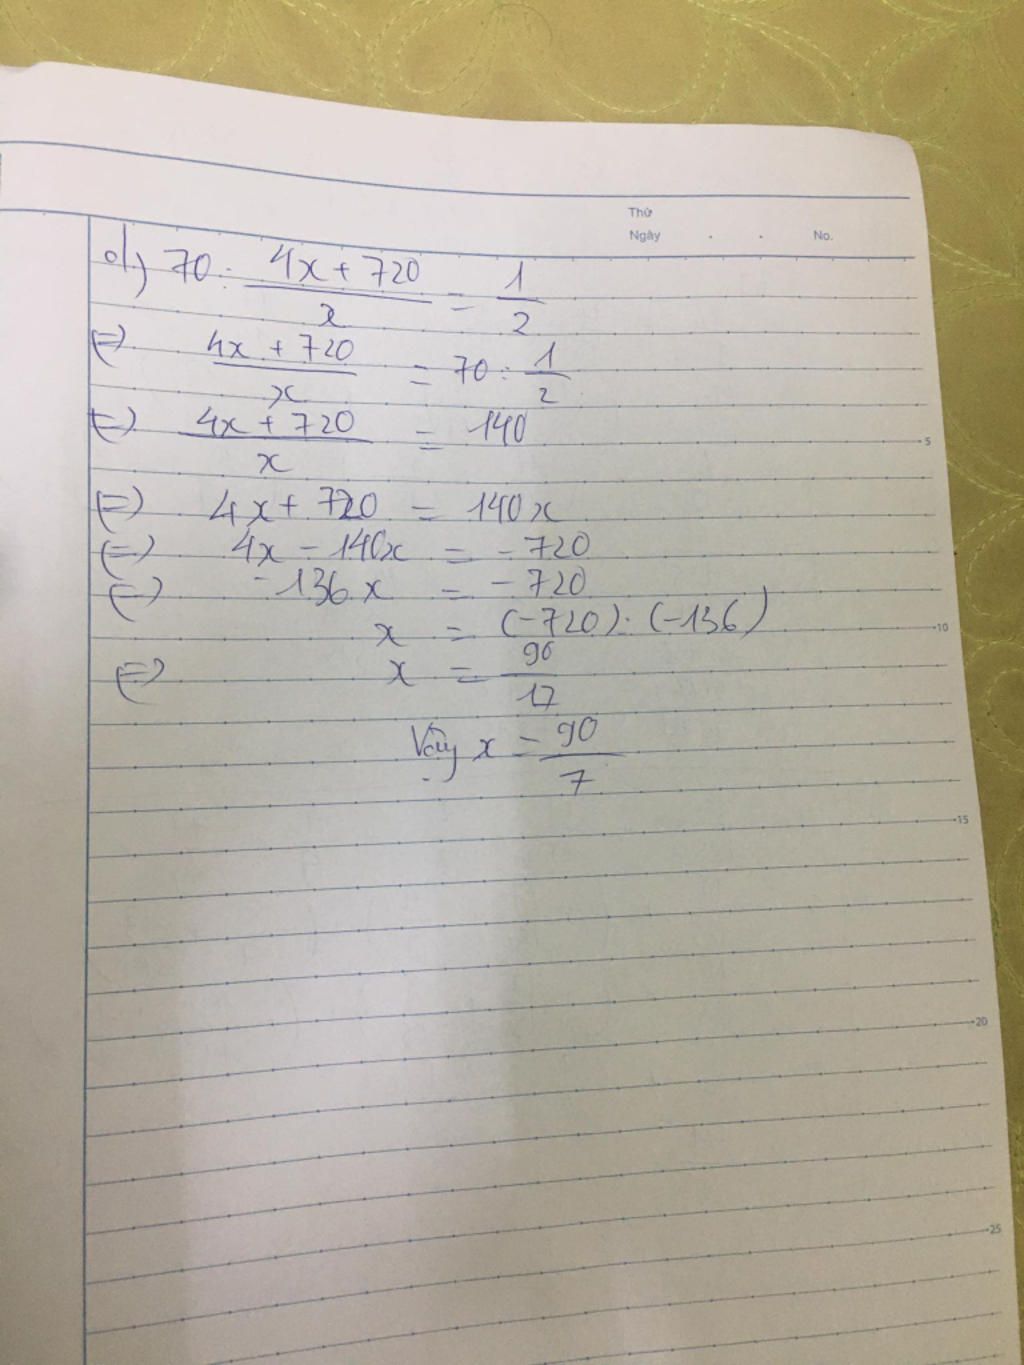 Thứ
Ngày . . No.
d) 70 : (4x + 720)/x = 1/2
(=) (4x + 720)/x = 70 : 1/2
(=) (4x + 720)/x = 140
5
(=) 4x + 720 = 140x
(=) 4x - 140x = -720
(=) -136x = -720
x = (-720) : (-136)
10
(=) x = 90/17
Vậy x = 90/7
15
20
25